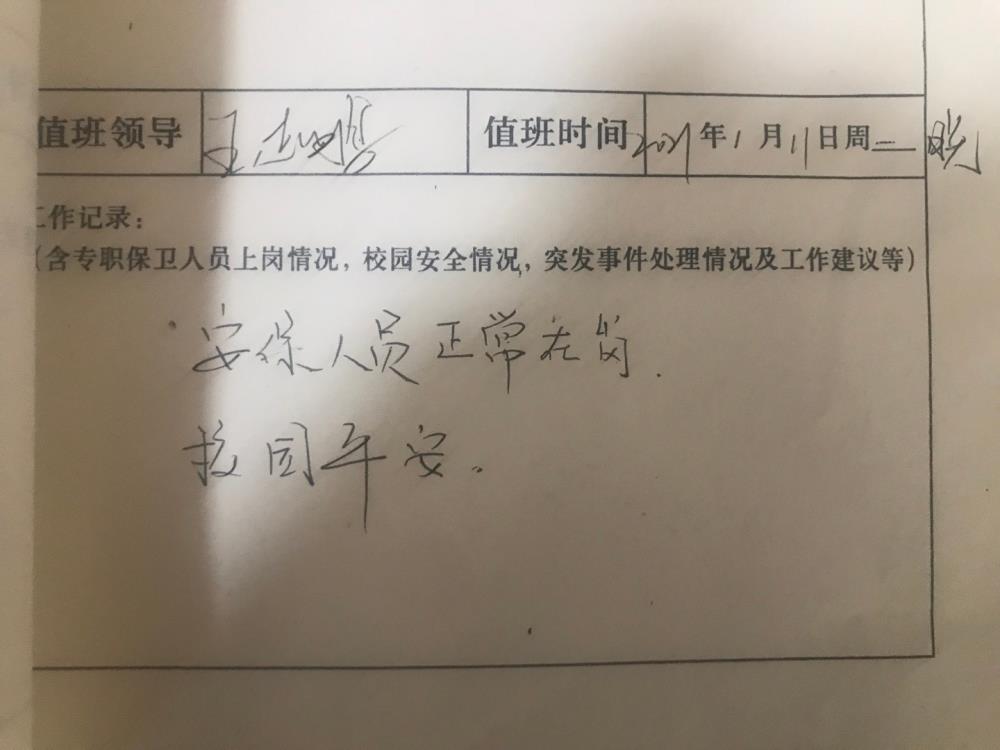 值班领导 王 值班时间 2021年1月11日周二 晚
工作记录：
（含专职保卫人员上岗情况，校园安全情况，突发事件处理情况及工作建议等）
安保人员正常在岗.
校园平安。